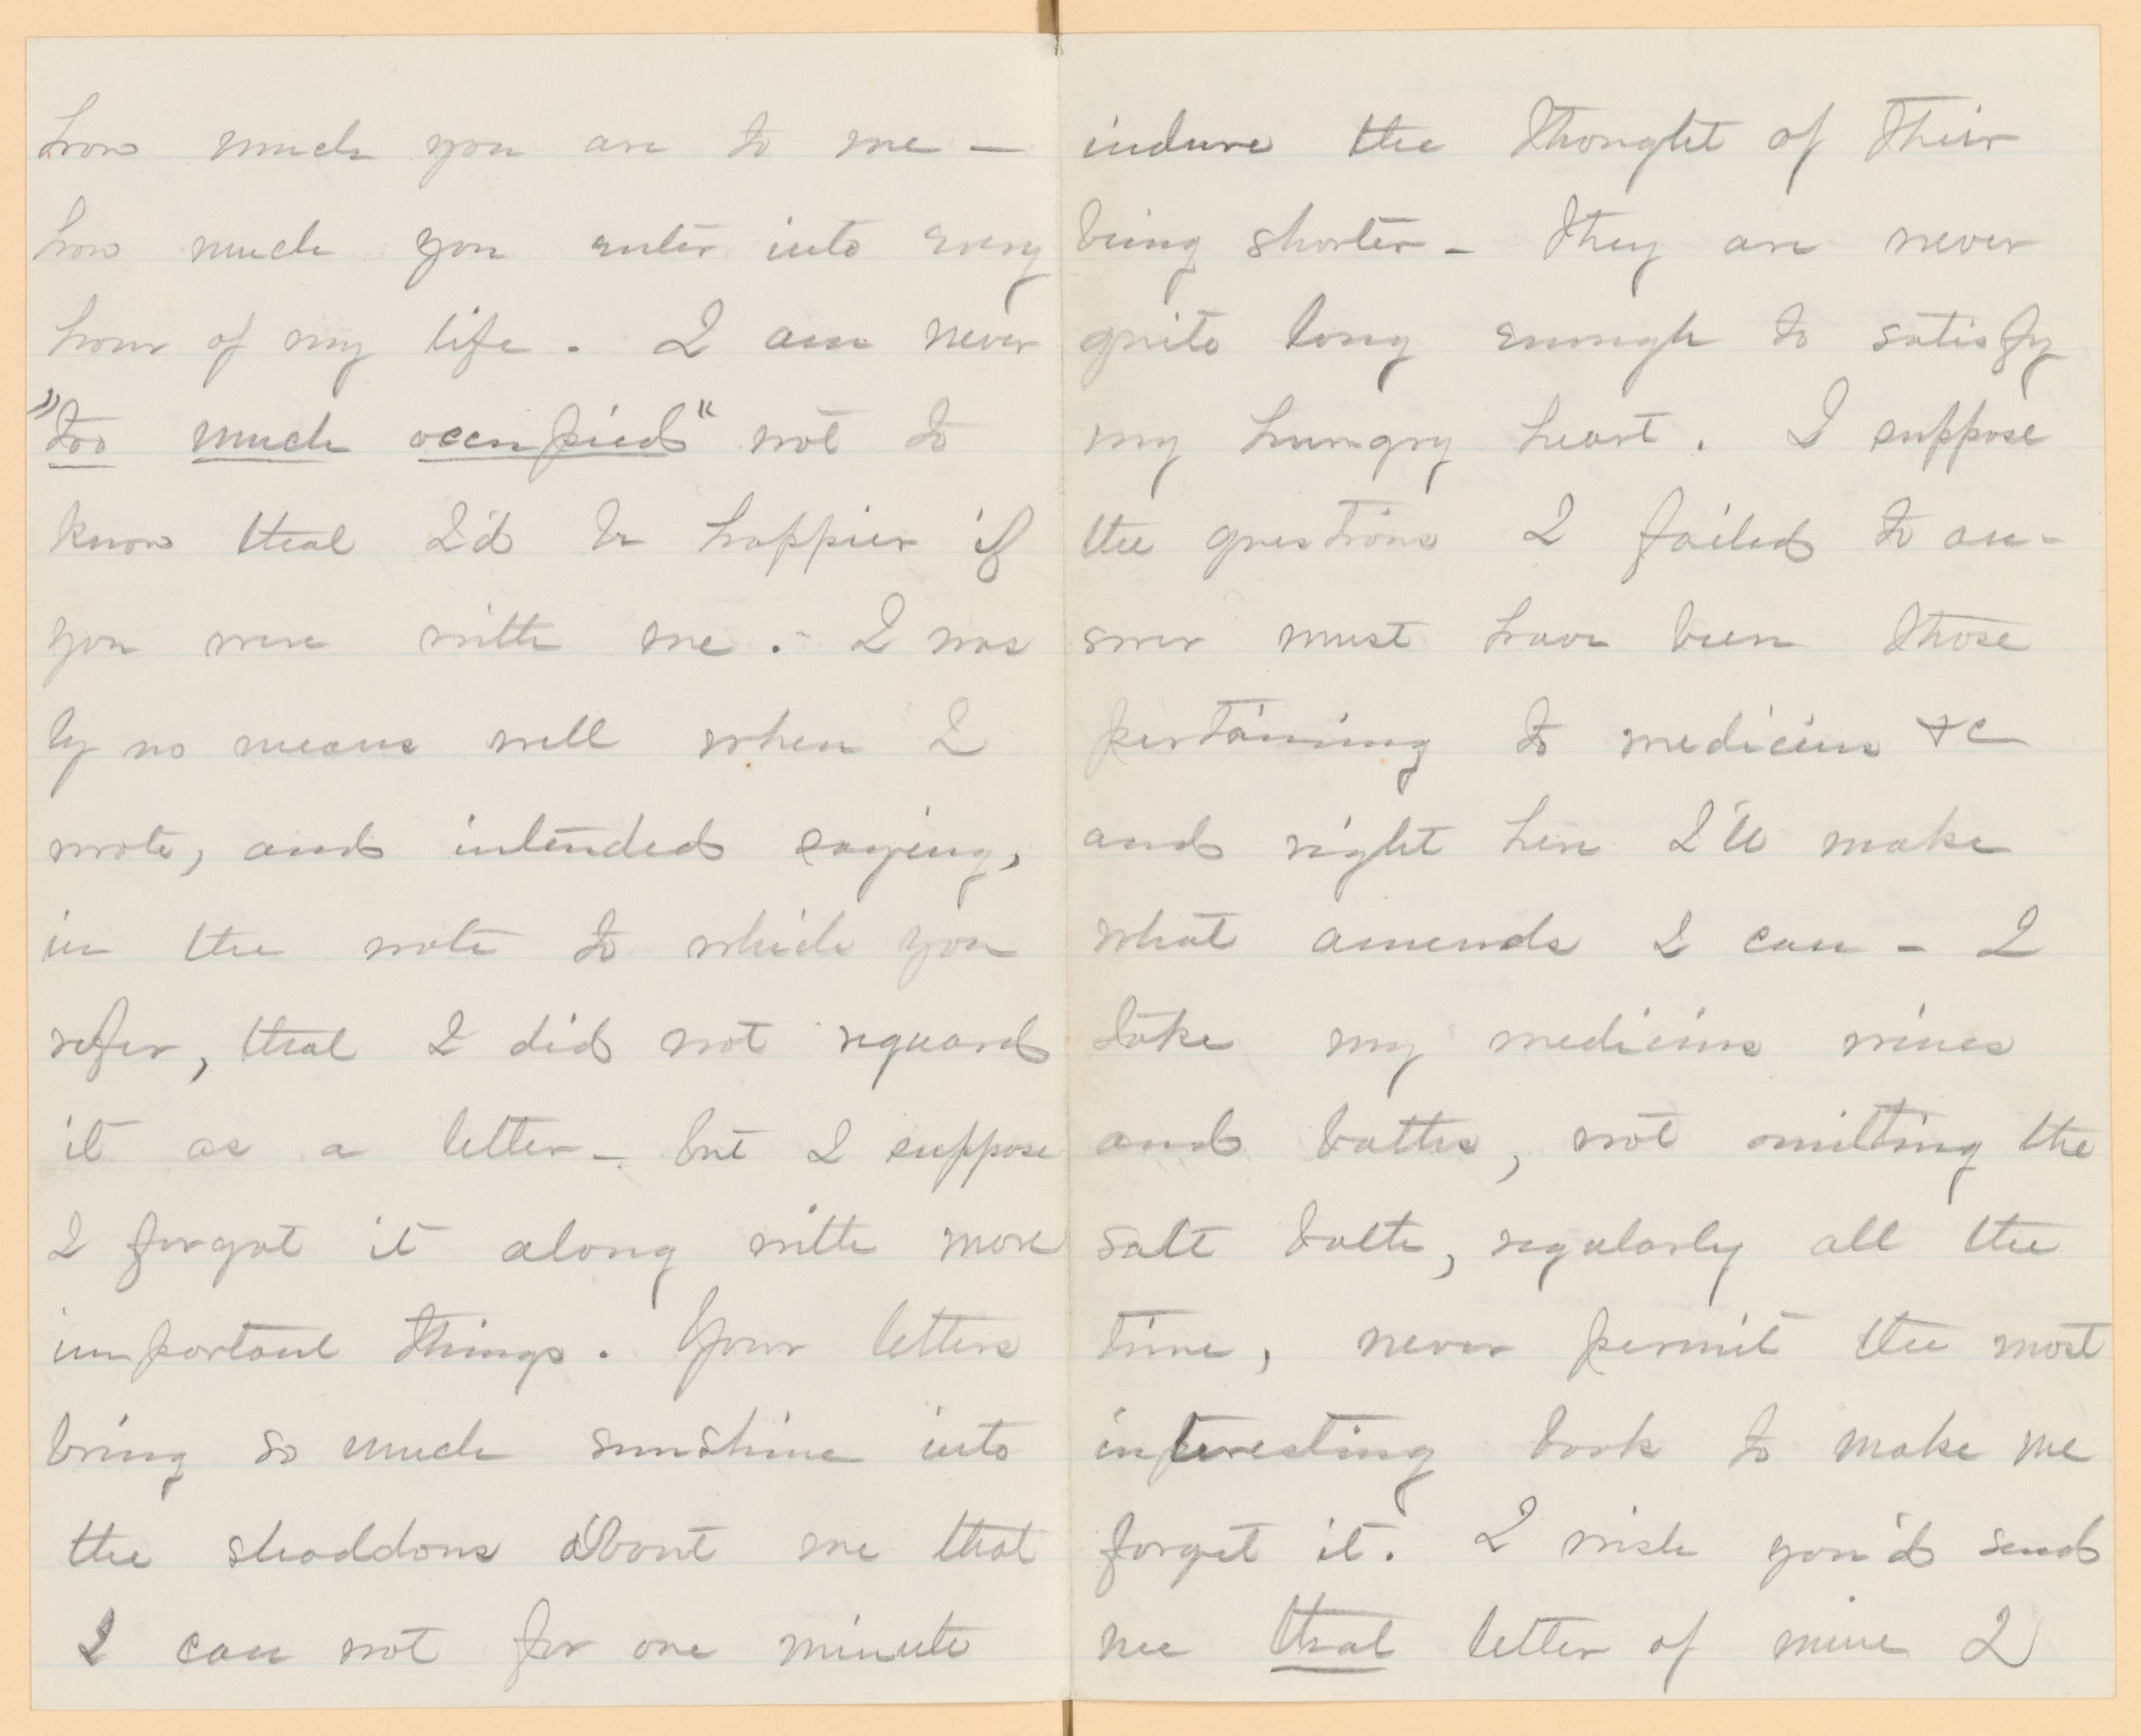 how much you are to me —
how much you enter into every
hour of my life. I am never
"too much occupied" not to
know that I'd be happier if
you were with me. - I was
by no means well when I
wrote, and intended saying,
in the note to which you
refer, that I did not reguard
it as a letter - but I suppose
I forgot it along with more
important things. Your letters
bring so much sunshine into
the shaddows about me that
I can not for one minute
indure the thought of their
being shorter - they are never
quite long enough to satisfy
my hungry heart. I suppose
the questions I failed to an-
swer must have been those
pertaining to medicine &c
and right here I'll make
what amends I can - I
take my medicine wines
and baths, not omitting the
salt bath, regularly all the
time, never permit the most
interesting book to make me
forget it. I wish you'd send
me that letter of mine I